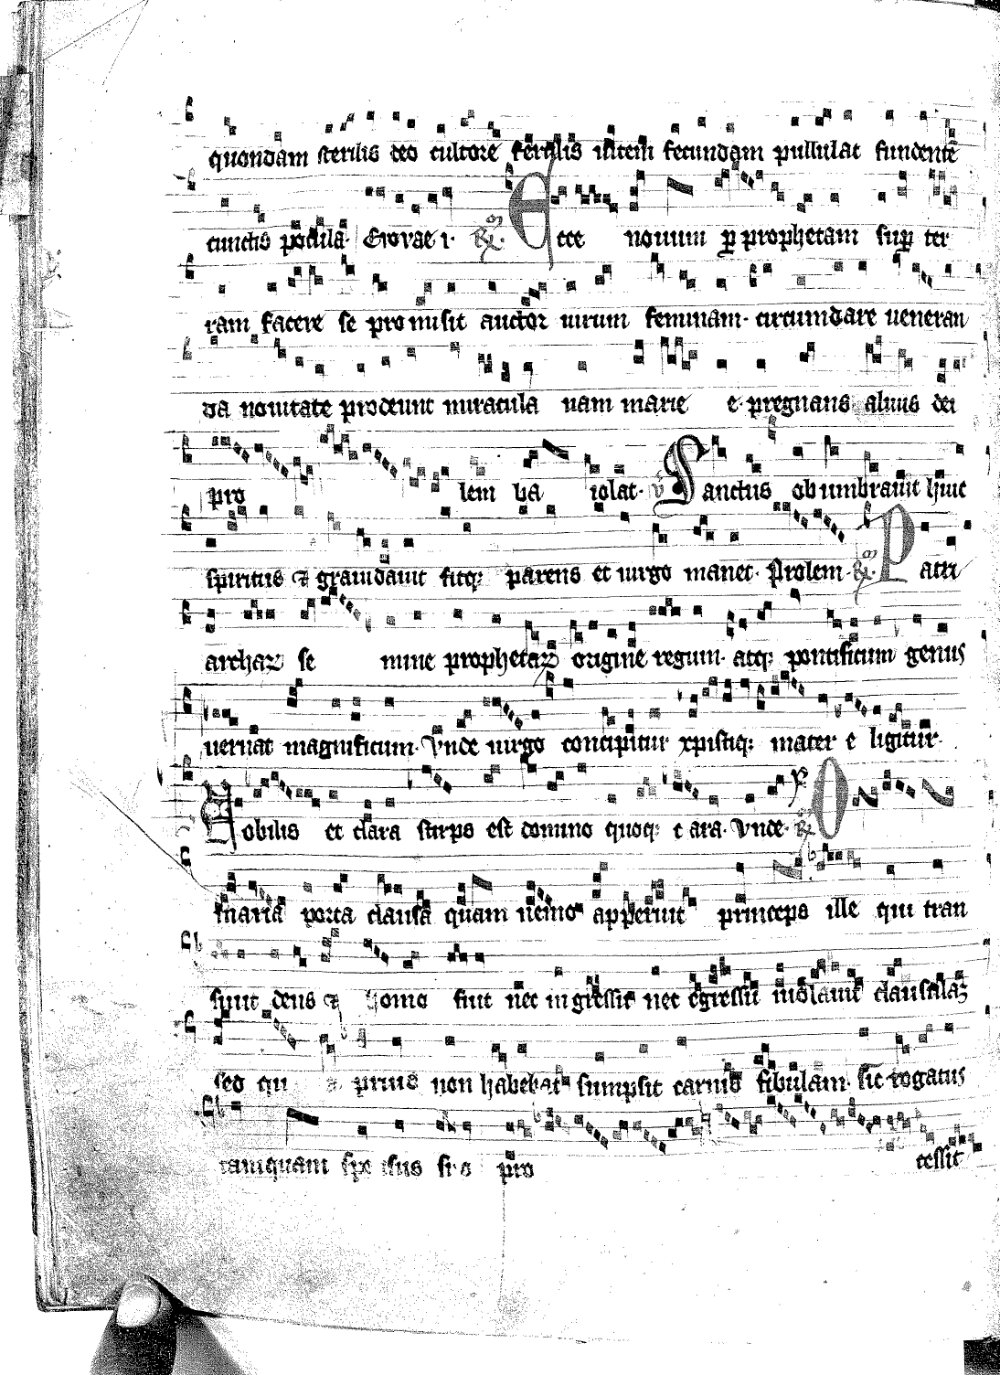 quondam sterilis deo cultore fertilis vitem fecundam pullulat fundentē
cunctis pocula. Evovae i. R̃. Ecce novum ꝑ prophetam suꝑ ter
ram facere se promisit auctor virum feminam. circumdare veneran
da novitate prodeunt miracula nam marie e pregnans alvus dei
pro lem ba iolat. v̄ Sanctus obumbravit huic
spiritus ⁊ gravidavit sitqꝫ parens et virgo manet. Prolem. R̃. Patri
archaꝝ se mine prophetaꝝ origine regum. atqꝫ pontificum genus
vernat magnificum. Vnde virgo concipitur xpistiqꝫ mater e ligitur.
Nobilis et clara stirps est domino quoqꝫ c ara. Vnde. R̃ O
maria porta clausa quam nemo apperuit princeps ille qui tran
sivit deus ⁊ homo fuit nec ingressu nec egressu violavit clausulaꝫ
sed qui a prius non habebat sumpsit carnis fibulam. sic rogatus
tamquam spo sus s pro cessit